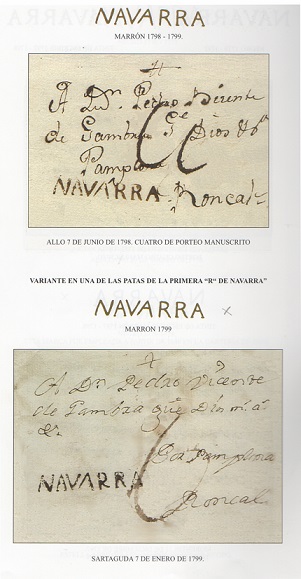 NAVARRA
MARRÓN 1798 - 1799.
A Dn. Pedro Vicente
de Gambra Ge. Dios
Pampla
NAVARRA Roncal
ALLO 7 DE JUNIO DE 1798. CUATRO DE PORTEO MANUSCRITO
VARIANTE EN UNA DE LAS PATAS DE LA PRIMERA “R“ DE NAVARRA”
NAVARRA x
MARRON 1799
A Dn. Pedro Vicente
de Gambra que Dios m. a.
Por Pamplona
NAVARRA
Roncal
SARTAGUDA 7 DE ENERO DE 1799.